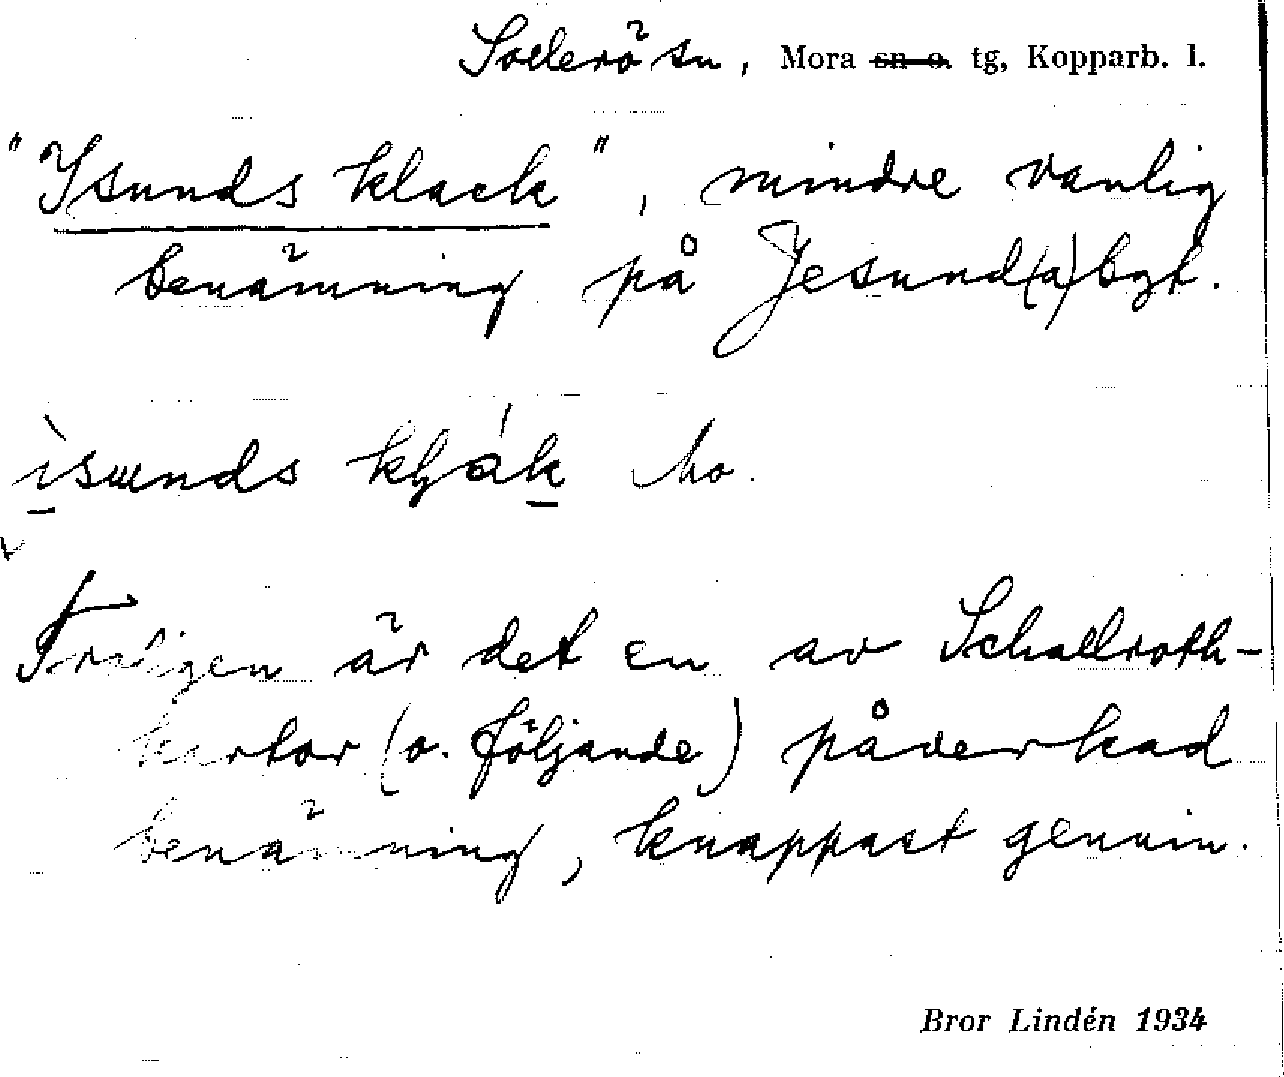 Sollerö sn, Mora sn o. tg, Kopparb. l.
"Isunds klack", mindre vanlig
benämning på Jesund(a)bgt.
ìsunds klják Mo.
Troligen är det en av Schallroth-
kartor (o. följande) påverkad
benämning, knappast genuin.
Bror Lindén 1934